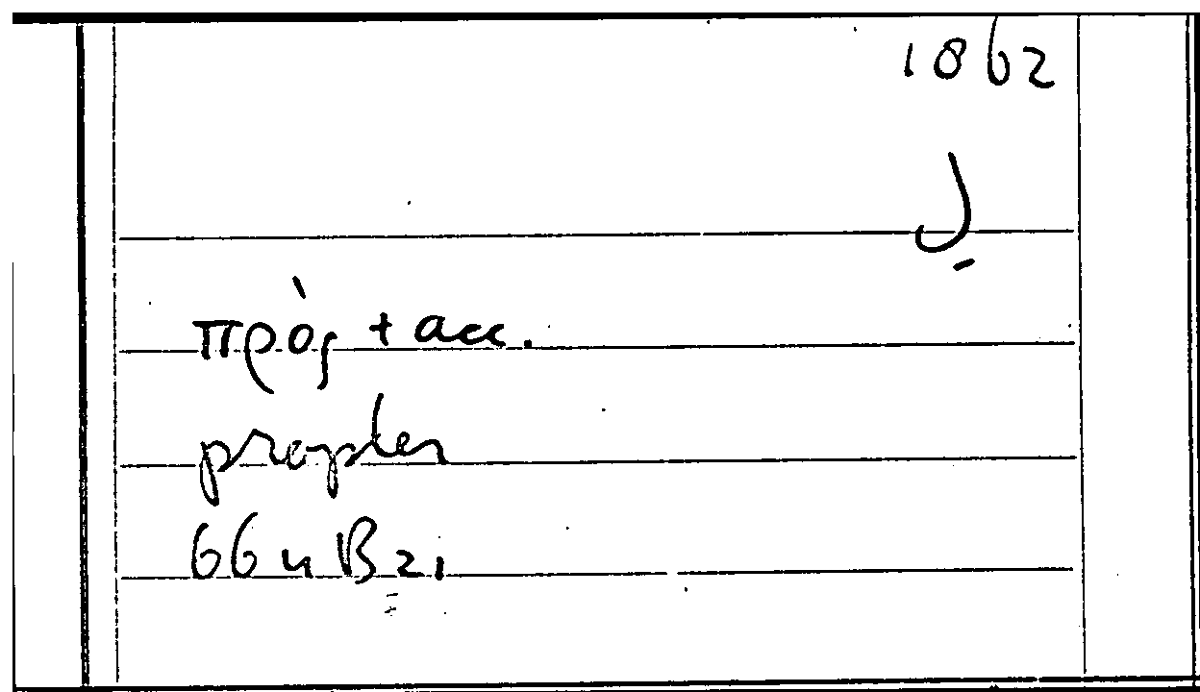 1862
لِ
πρὸς + acc.
propter
66 u B 21